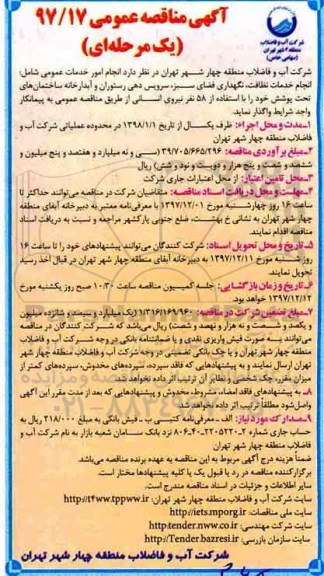 آگهی مناقصه عمومی ۹۷/۱۷
(یک مرحله‌ای)
شرکت آب و فاضلاب
منطقه ۴ شهر تهران
(سهامی خاص)
شرکت آب و فاضلاب منطقه چهار شهر تهران در نظر دارد انجام امور خدمات عمومی شامل:
انجام خدمات نظافت، نگهداری فضای سبز، سرویس دهی رستوران و آبدارخانه ساختمان‌های
تحت پوشش خود را با استفاده از ۵۸ نفر نیروی انسانی از طریق مناقصه عمومی به پیمانکار
واجد شرایط واگذار نماید.
۱ـ مدت و محل اجرا: ظرف یکسال از تاریخ ۱۳۹۸/۱/۱ در محدوده عملیاتی شرکت آب و
فاضلاب منطقه چهار شهر تهران
۲ـ مبلغ برآوردی مناقصه: ۳۹/۷۰۵/۶۶۵/۲۹۶ (سی و نه میلیارد و هفتصد و پنج میلیون و
ششصد و شصت و پنج هزار و دویست و نود و شش) ریال
۳ـ محل تامین اعتبار: از محل اعتبارات جاری شرکت
۴ـ مهلت و محل دریافت اسناد مناقصه: متقاضیان شرکت در مناقصه می‌توانند حداکثر تا
ساعت ۱۶ روز چهارشنبه مورخ ۱۳۹۷/۱۲/۰۱ با معرفی‌نامه معتبر به دبیرخانه آبفای منطقه
چهار شهر تهران به نشانی خ بهشت، ضلع جنوبی پارکشهر مراجعه و نسبت به دریافت اسناد
مناقصه اقدام نمایند.
۵ـ تاریخ و محل تحویل اسناد: شرکت کنندگان می‌توانند پیشنهادهای خود را تا ساعت ۱۶
روز شنبه مورخ ۱۳۹۷/۱۲/۱۱ به دبیرخانه آبفای منطقه چهار شهر تهران در قبال اخذ رسید
تحویل نمایند.
۶ـ تاریخ و زمان بازگشایی: جلسه کمیسیون مناقصه ساعت ۱۰:۳۰ صبح روز یکشنبه مورخ
۱۳۹۷/۱۲/۱۲ خواهد بود.
۷ـ مبلغ تضمین شرکت در مناقصه: ۱/۳۱۶/۱۶۹/۹۶۰ (یک میلیارد و سیصد و شانزده میلیون
و یکصد و شصت و نه هزار و نهصد و شصت) ریال می‌باشد که شرکت کنندگان در مناقصه
می‌توانند به صورت فیش واریزی نقدی و یا ضمانتنامه بانکی در وجه شرکت آب و فاضلاب
منطقه چهار شهر تهران و یا چک بانکی تضمینی در وجه شرکت آب و فاضلاب منطقه چهار شهر
تهران ارسال نمایند و به پیشنهادهایی که فاقد سپرده، سپرده‌های مخدوش، سپرده‌های کمتر از
میزان مقرر، چک شخصی و نظایر آن ترتیب اثر داده نخواهد شد.
۸ـ به پیشنهادهای فاقد امضاء، مشروط، مخدوش و پیشنهادهایی که بعد از مدت مقرر این آگهی
واصل شود مطلقاً ترتیب اثر داده نخواهد شد.
۹ـ مدارک مورد نیاز: الف ـ معرفی‌نامه کتبی ب ـ فیش بانکی به مبلغ ۲۱۸/۰۰۰ ریال به
حساب جاری شماره ۲-۲۲۰۵۲۲۰-۴۰-۸۰۶ نزد بانک سامان شعبه بازار به نام شرکت آب و
فاضلاب منطقه چهار شهر تهران
ضمناً هزینه درج آگهی مربوط به این مناقصه به عهده برنده مناقصه می‌باشد.
برگزارکننده مناقصه در رد یا قبول یک یا کلیه پیشنهادها مختار است.
سایر اطلاعات و جزئیات در اسناد مناقصه مندرج است.
سایت شرکت آب و فاضلاب منطقه چهار شهر تهران: http://t4ww.tppww.ir
سایت ملی مناقصات: http://iets.mporg.ir
سایت شرکت مهندسی: http:tender.nww.co.ir
سایت سازمان بازرسی: http://Tender.bazresi.ir
شرکت آب و فاضلاب منطقه چهار شهر تهران